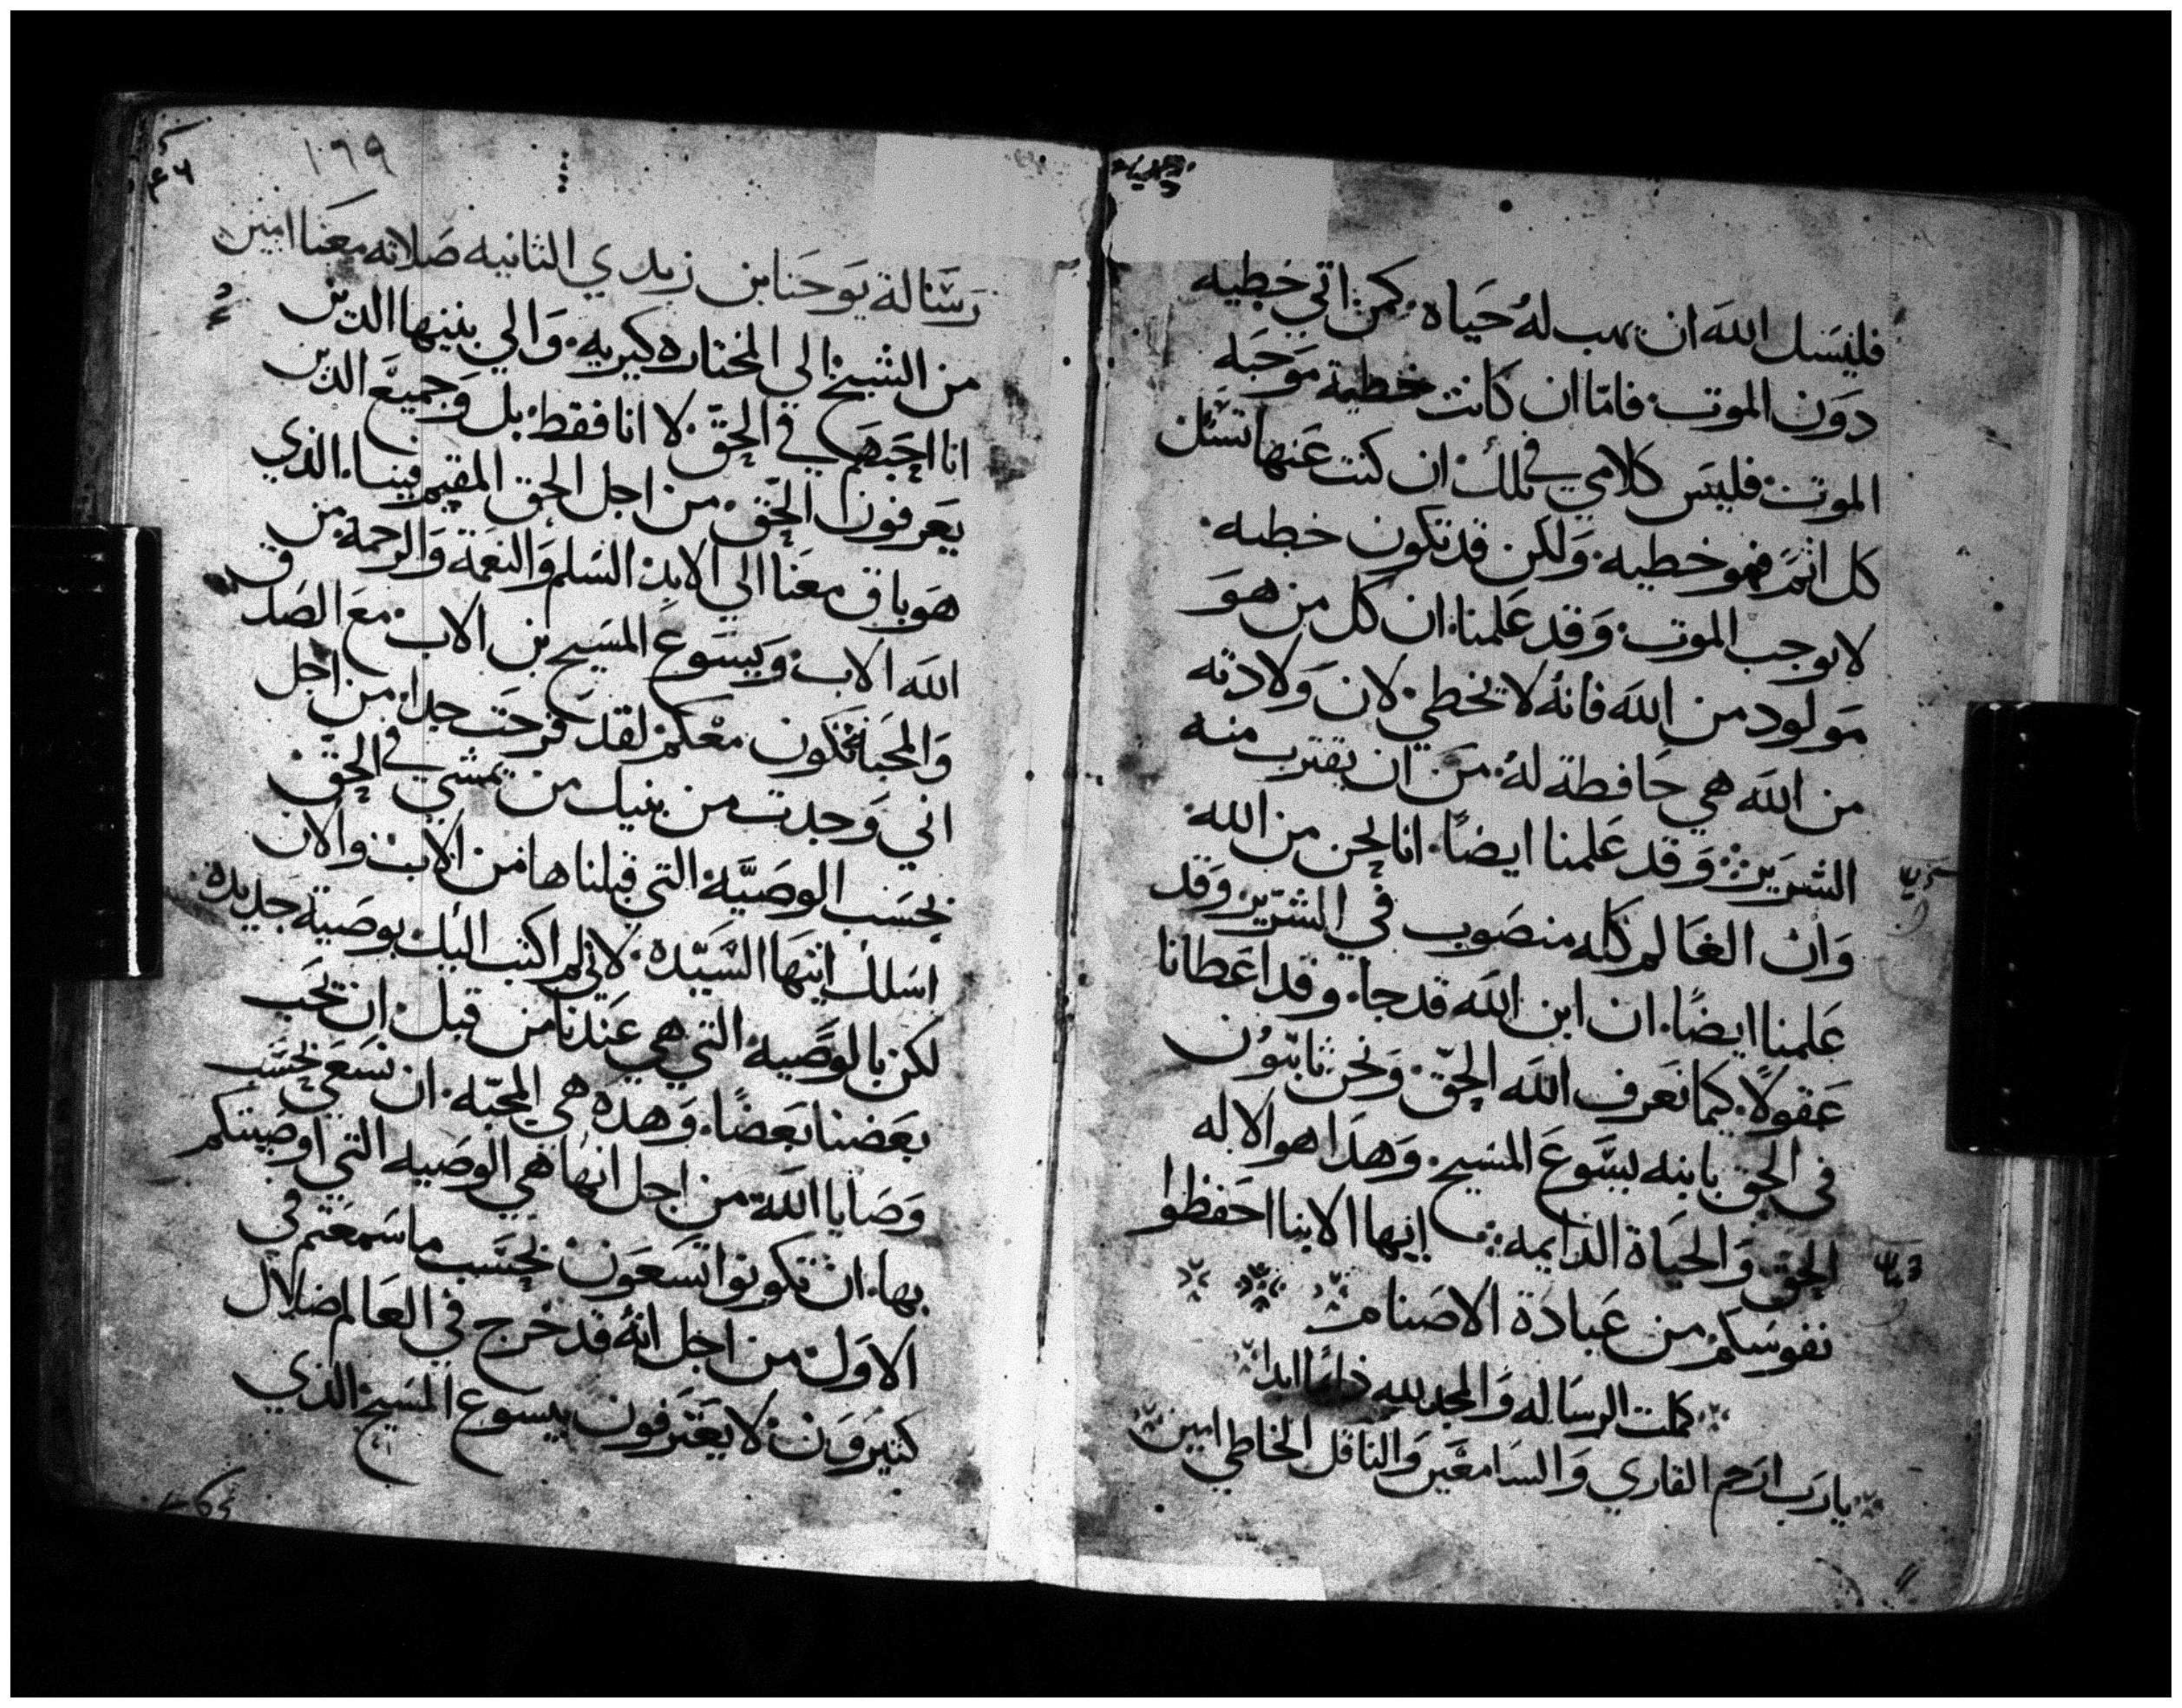 فليسل الله ان يهب له حياه كمن اتي خطيه
دون الموت فاما ان كانت خطية موجبه
الموت فليس كلامي في تلك ان كنت عنها تسل
كل اثم فهو خطيه ولكن قد تكون خطيه
لا توجب الموت وقد علمنا ان كل من هو
مولود من الله فانه لا يخطي لان ولادته
من الله هي حافظة له من ان يقترب منه
الشرير وقد علمنا ايضاً انا نحن من الله
وان العالم كله منصوب في الشرير وقد
علمنا ايضاً ان ابن الله قد جا وقد اعطانا
عقولاً كيما نعرف الله الحق ونحن ثابتون
في الحق بابنه يسوع المسيح وهذا هو الاله
الحق والحياة الدايمه ايها الابنا احفظوا
نفوسكم من عبادة الاصنام
كملت الرساله والمجد لله دائما ابدا
يا رب ارحم القاري والسامعين والناقل الخاطي امين
١٩٩
رسالة يوحنا بن زبدي الثانيه صلاته معنا امين
من الشيخ الي المختاره كيريه والي بنيها الذين
انا احبهم في الحق لا انا فقط بل وجميع الذين
يعرفون الحق من اجل الحق المقيم فينا الذي
هو باق معنا الي الابد السلم والنعمة والرحمة من
الله الاب ويسوع المسيح بن الاب مع الصدق
والمحبة تكون معكم لقد فرحت جدا من اجل
اني وجدت من بنيك من يمشي في الحق
بحسب الوصية التي قبلناها من الاب والان
اسلك ايتها السيده لاني لم اكتب اليك بوصية جديده
لكن بالوصيه التي هي عندنا من قبل ان نحب
بعضنا بعضاً وهذه هي المحبه ان نسعي بحسب
وصايا الله من اجل انها هي الوصيه التي اوصيتكم
بها ان تكونوا تسعون بحسب ما سمعتم في
الاول من اجل انه قد خرج في العالم ضلال
كثيرون لا يعترفون بيسوع المسيح الذي